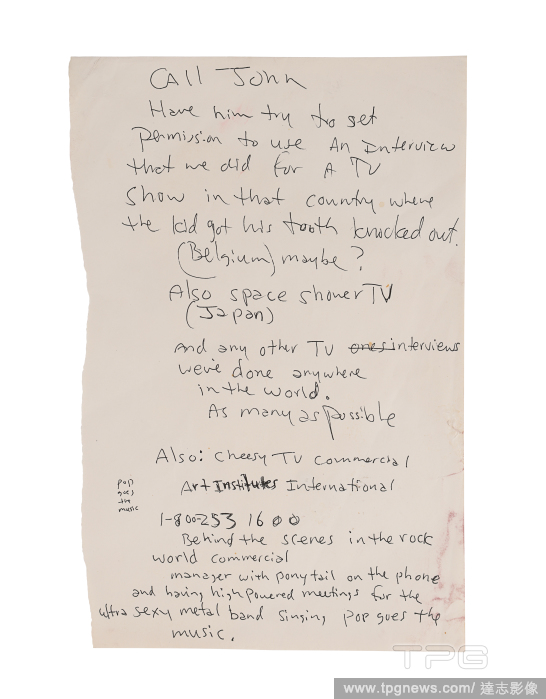 Call John
Have him try to get
Permission to use An Interview
that we did for A TV
Show in that country where
the kid got his tooth knocked out.
(Belgium) maybe?
Also space shower TV
(Japan)
And any other TV ones interviews
we've done anywhere
in the world.
As many as possible
Also: Cheesy TV commercial
pop
goes
the
music
Art Institutes International
1-800-253 1600
Behind the scenes in the rock
world commercial
manager with ponytail on the phone
and having high powered meetings for the
ultra sexy metal band singing pop goes the
music.
TPG
www.tpgnews.com/ 達志影像